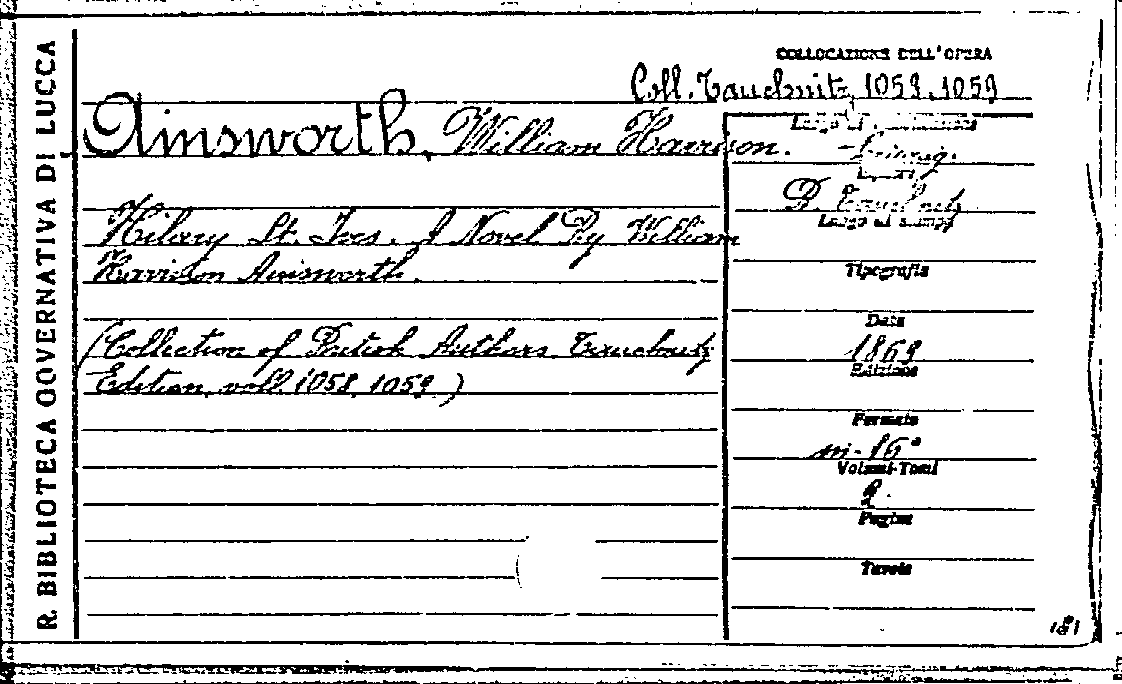 R. BIBLIOTECA GOVERNATIVA DI LUCCA
COLLOCAZIONE DELL'OPERA
Coll. Tauchnitz, 1058, 1059
Ainsworth, William Harrison.
Hilary St. Ives. A Novel By William
Harrison Ainsworth.
(Collection of British Authors Tauchnitz
Edition, voll. 1058, 1059)
Luogo di
Leipzig.
B. Tauchnitz
Luogo di stampa
Tipografia
Data
1869
Edizione
Formato
in-16°
Volumi-Tomi
2.
Pagine
Tavole